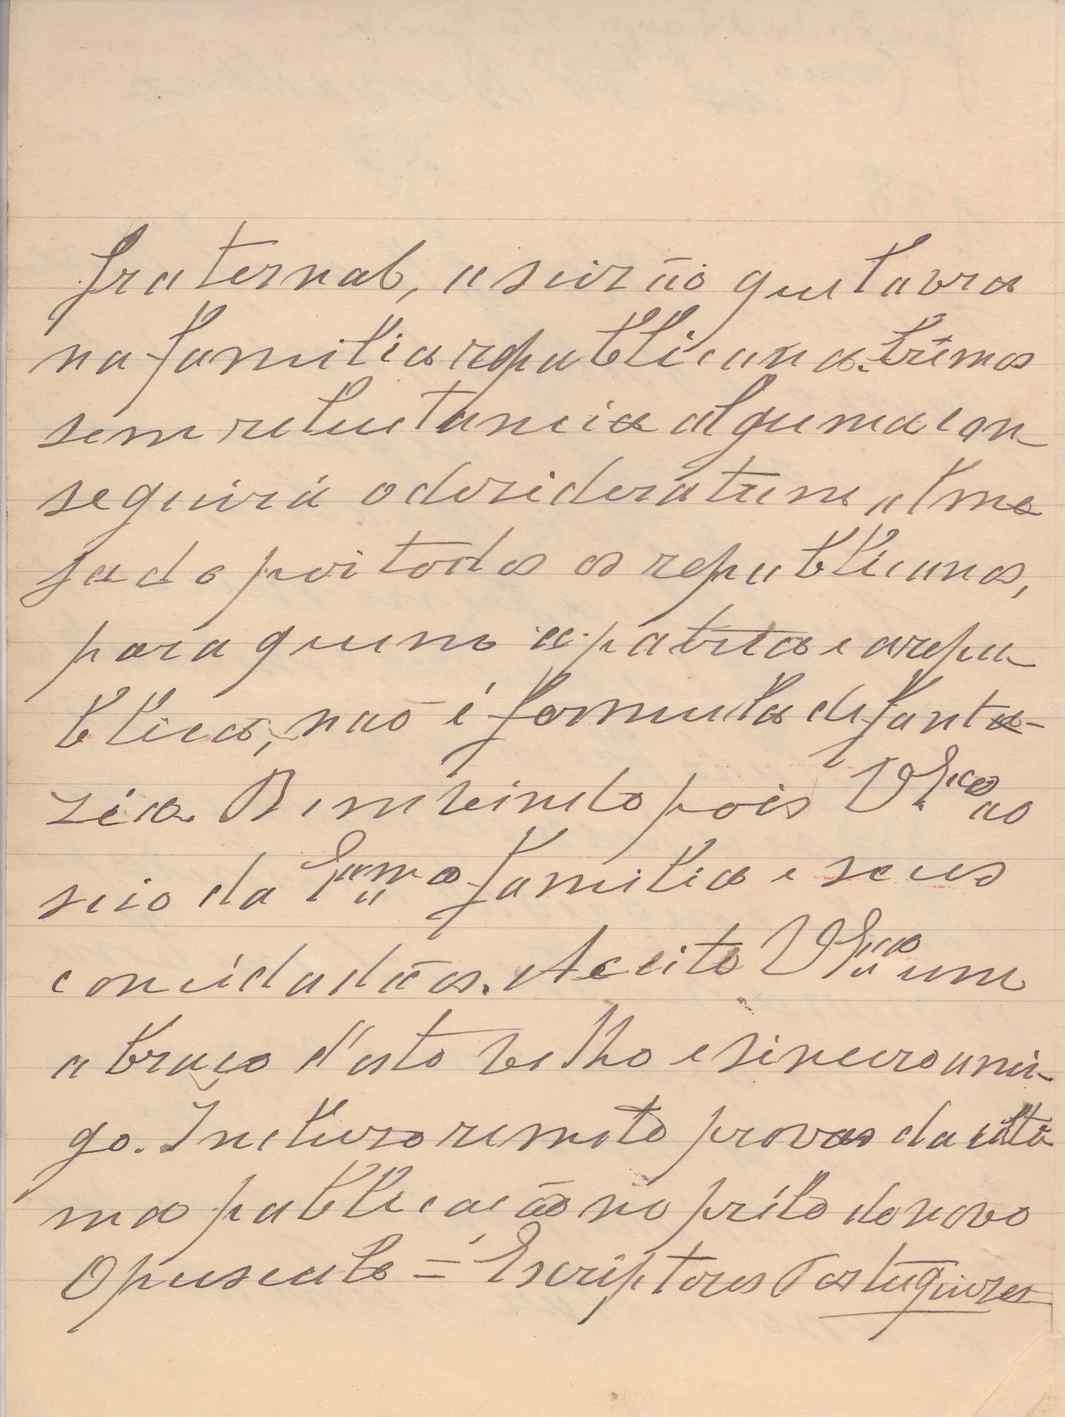 fraternal, a scizão que lavra
na familia republicana. Evemos
sem reluctancia alguma con-
seguirá o desideratum, alme
jado por todos os republicanos,
para que uno a patria e a repu-
blica, não é formula de fanta-
zia. Bemvindo pois V Exca ao
seio da Exma familia e seus
concidadãos. Aceite V Exca um
abraço d'este velho e sincero ami-
go. Incluzo remeto provas da ulti
ma publicação no prélo do novo
Opusculo = Escriptores Portuguezes